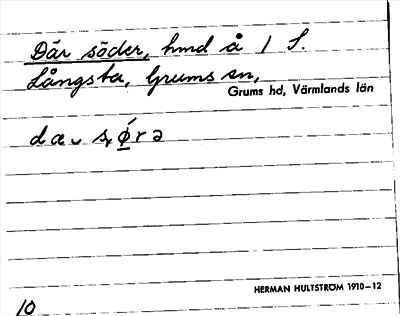 Där söder, hmd å 1 S.
Långsta, Grums sn,
Grums hd, Värmlands län
HERMAN HULTSTRÖM 1910–12
10